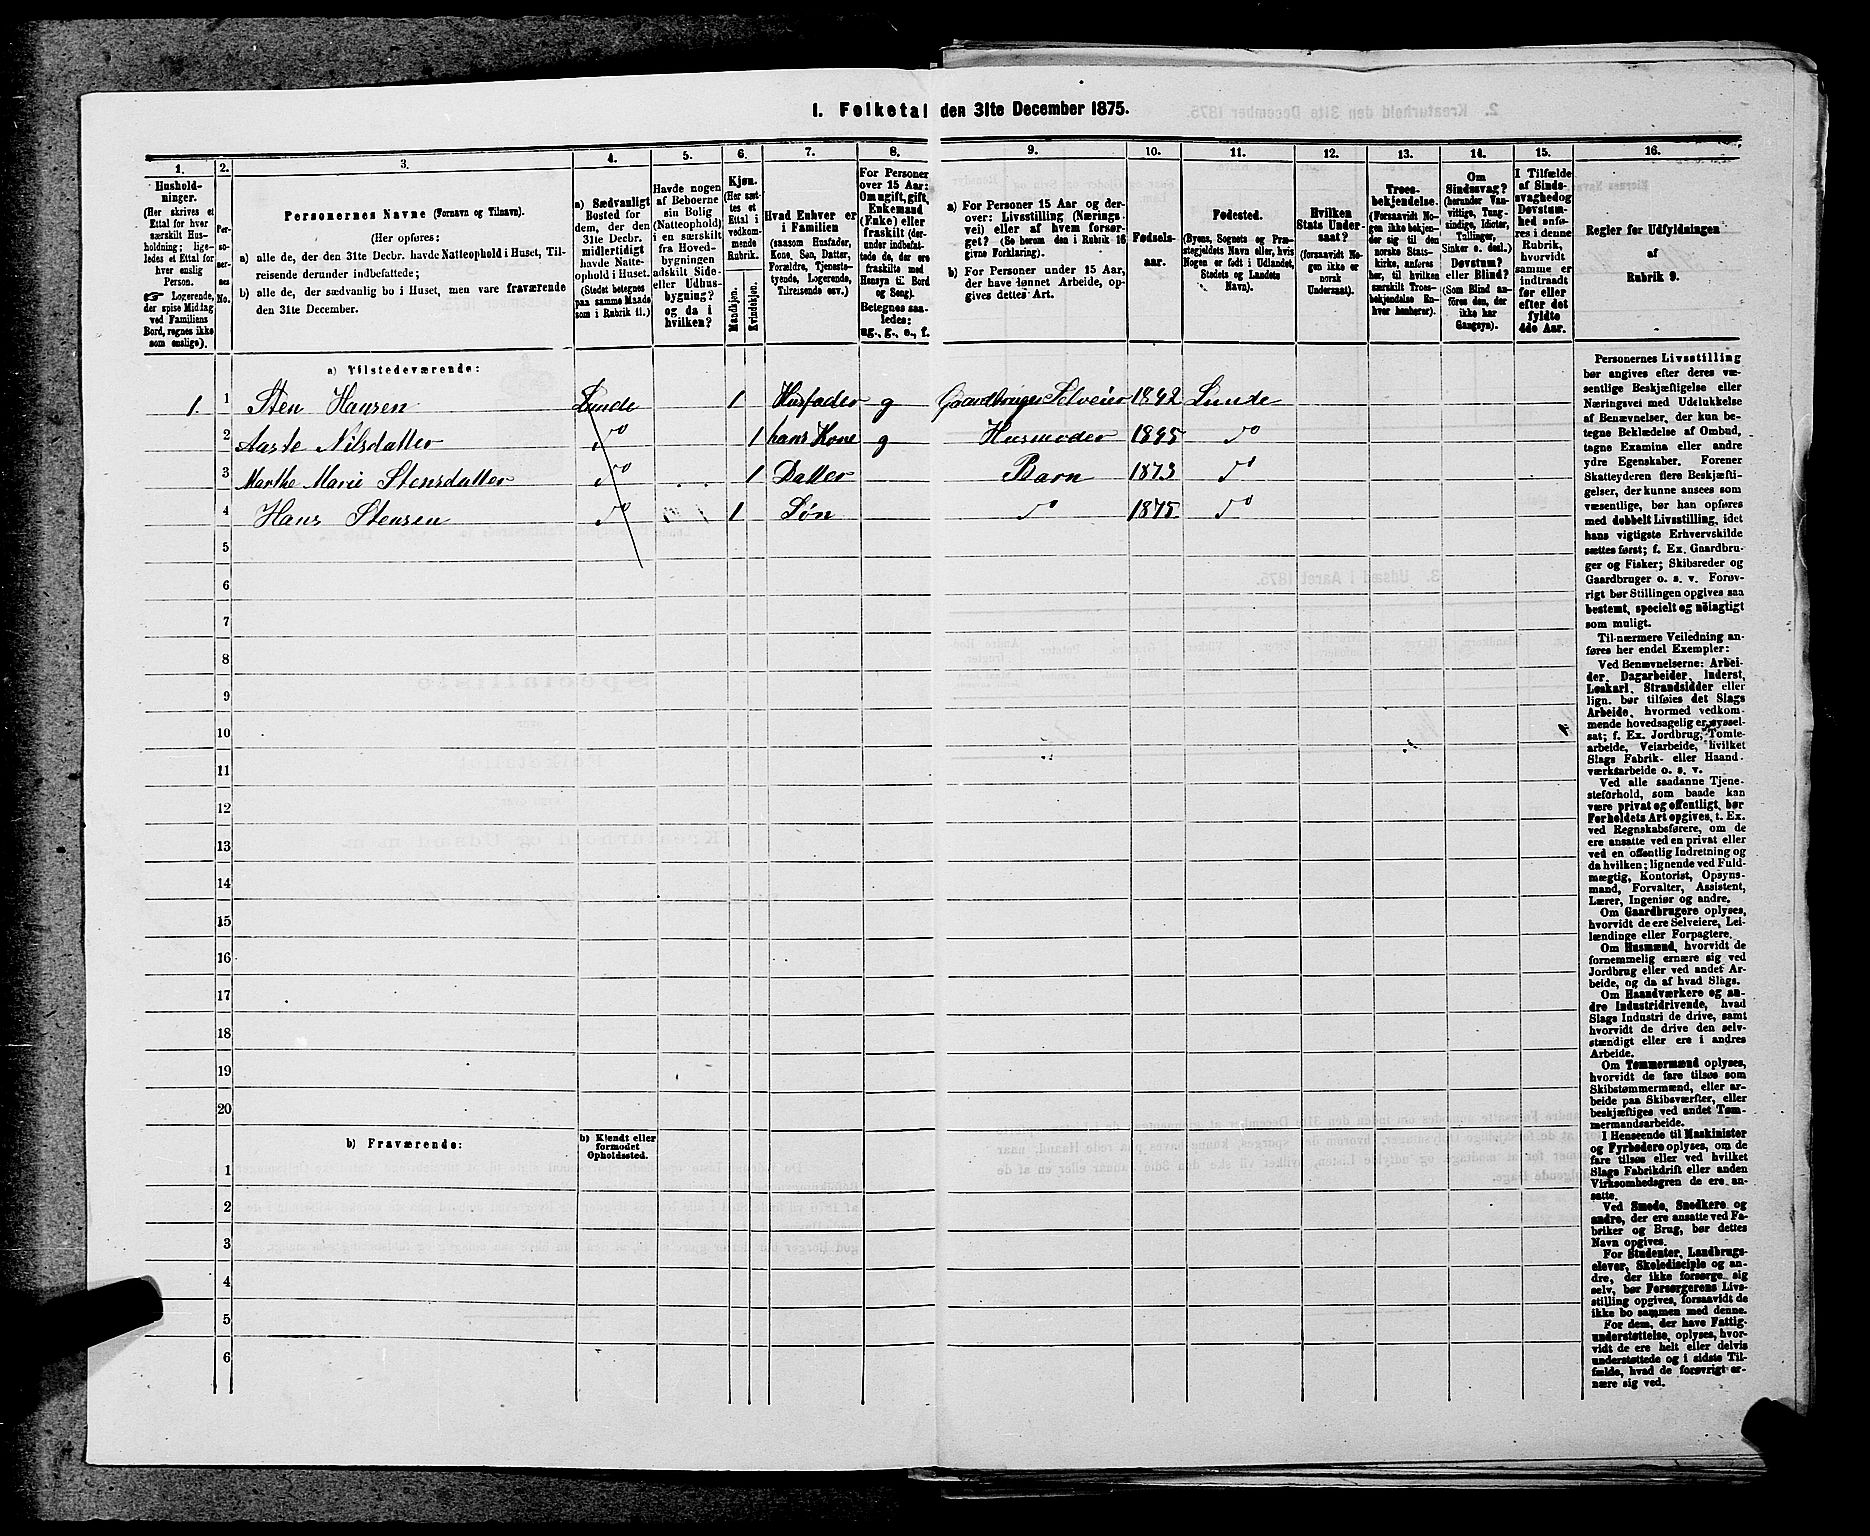 I. Folketal den 31te December 1875.
1. 2. 3. 4. 5. 6. 7. 8. 9. 10. 11. 12. 13. 14. 15. 16.
Hushold-
ninger.
(Her skrives et
Ettal for hver
særskilt Hus-
holdning; lige-
ledes et Ettal for
hver enslig
Person.
☞ Logerende,
der spise Middag
ved Familiens
Bord, regnes ikke
som enslige).
Per-
so-
ner-
nes
No.
Personernes Navne (Fornavn og Tilnavn).
(Her opføres:
a) alle de, der den 31te Decbr. havde Natteophold i Huset, Til-
reisende derunder indbefattede;
b) alle de, der sædvanlig bo i Huset, men vare fraværende
den 31te December.
a) Sædvanligt
Bosted for
dem, der den
31te Decbr.
midlertidigt
havde Natte-
ophold i Huset.
(Stedet betegnes
paa samme Maade
som i Rubrik 11.)
Havde nogen
af Beboerne
sin Bolig
(Natteophold)
i en særskilt
fra Hoved-
bygningen
adskilt Side-
eller Udhus-
bygning?
og da i
hvilken?
Kjøn.
(Her sæt-
tes et
Ettal i
vedkom-
mende
Rubrik.
Mandkjøn.
Kvindekjøn.
Hvad Enhver er
i Familien
(saasom Husfader,
Kone, Søn, Datter,
Forældre, Tjeneste-
tyende, Logerende,
Tilreisende osv.)
For Personer
over 15 Aar:
Om ugift, gift,
Enkemand
(Enke) eller
fraskilt (der-
under indbefat-
tede de, der ere
fraskilte med
Hensyn til Bord
og Seng).
Betegnes saa-
ledes:
ug., g., e., f.
a) For Personer 15 Aar og der-
over: Livsstilling (Nærings-
vei) eller af hvem forsør-
get? (Se herom den i Rubrik 16
givne Forklaring).
b) For Personer under 15 Aar,
der have lønnet Arbeide, op-
gives dettes Art.
Fødsels-
aar.
Fødested.
(Byens, Sognets og Præ-
stegjeldets Navn eller, hvis
Nogen er født i Udlandet,
Stedets og Landets
Navn).
Hvilken
Stats Under-
saat?
(forsaavidt No-
gen ikke er
norsk
Undersaat).
Troes-
bekjendelse.
(Forsaavidt No-
gen ikke bekjen-
der sig til den
norske Stats-
kirke, anføres
her, til hvilken
særskilt Troes-
bekjendelse En-
hver henhører).
Om
Sindssvag?
(herunder Van-
vittige, Tung-
sindige, Idioter,
Tullinger,
Sinker o. desl.)
Døvstum?
eller Blind?
(Som Blind an-
føres den, der
ikke har
Gangsyn).
I Tilfælde
af Sinds-
svaghed og
Døvstum-
hed anfø-
res i denne
Rubrik,
hvorvidt
samme er
indtraadt
før eller
efter det
fyldte
4de Aar.
Regler for Udfyldningen
af
Rubrik 9.
a) Tilstedeværende:
1. 1 Sten Hansen Lunde 1 Husfader g Gaardbruger Selveier 1842 Lunde
2 Aaste Nilsdatter do 1 hans Kone g Husmoder 1845 do
3 Marthe Marie Stensdatter do 1 Datter Barn 1873 do
4 Hans Stensen do 1 Søn do 1875 do
5
6
7
8
9
10
11
12
13
14
15
16
17
18
19
20
b) Fraværende:
b) Kjendt eller
formodet
Opholdssted.
1
2
3
4
5
6
Personernes Livsstilling
bør angives efter deres væ-
sentlige Beskjæftigelse eller
Næringsvei med Udelukkelse
af Benævnelser, der kun be-
tegne Beklædelse af Ombud,
tagne Examina eller andre
ydre Egenskaber. Forener
Skatteyderen flere Beskjæfti-
gelser, der kunne ansees som
væsentlige, bør han opføres
med dobbelt Livsstilling, idet
hans vigtigste Erhvervskilde
sættes først; f. Ex. Gaardbru-
ger og Fisker; Skibsreder og
Gaardbruger o. s. v. Forøv-
rigt bør Stillingen opgives saa
bestemt, specielt og nøiagtigt
som muligt.
Til nærmere Veiledning an-
føres her endel Exempler:
Ved Benævnelserne: Arbei-
der, Dagarbeider, Inderst,
Løskarl, Strandsidder eller
lign. bør tilføies det Slags
Arbeide, hvormed vedkom-
mende hovedsagelig er syssel-
sat; f. Ex. Jordbrug, Tomte-
arbeide, Veiarbeide, hvilket
Slags Fabrik- eller Haand-
værksarbeide o. s. v.
Ved alle saadanne Tjene-
steforhold, som baade kan
være privat og offentligt, bør
Forholdets Art opgives, t. Ex.
ved Regnskabsførere, om de
ere ansatte ved en privat eller
ved en offentlig Indretning og
da hvilken; lignende ved Fuld-
mægtig, Kontorist, Opsyns-
mand, Forvalter, Assistent,
Lærer, Ingeniør og andre.
Om Gaardbrugere oplyses,
hvorvidt de ere Selveiere, Lei-
lændinge eller Forpagtere.
Om Husmænd, hvorvidt de
fornemmelig ernære sig ved
Jordbrug eller ved andet Ar-
beide, og da af hvad Slags.
Om Haandværkere og an-
dre Industridrivende, hvad
Slags Industri de drive, samt
hvorvidt de drive den selv-
stændigt eller ere i andres
Arbeide.
Om Tømmermænd oplyses,
hvorvidt de fare tilsøs som
Skibstømmermænd, eller ar-
beide paa Skibsværfter, eller
beskjæftiges ved andet Tøm-
mermandsarbeide.
I Henseende til Maskinister
og Fyrbødere oplyses, om de
fare tilsøs eller ved hvilket
Slags Fabrikdrift eller anden
Virksomhedsgren de ere an-
satte.
Ved Smede, Snedkere og
andre, der ere ansatte ved Fa-
briker og Brug, bør dettes
Navn opgives.
For Studenter, Landbrugs-
elever, Skoledisciple og an-
dre, der ikke forsørge sig
selv, bør Forsørgerens Livs-
stilling opgives, forsaavidt de
ikke bo sammen med denne.
For dem, der have Fattig-
understøttelse, oplyses, hvor-
vidt de ere helt eller delvis
understøttede og i sidste Til-
fælde, hvad de forøvrigt er-
nære sig ved.